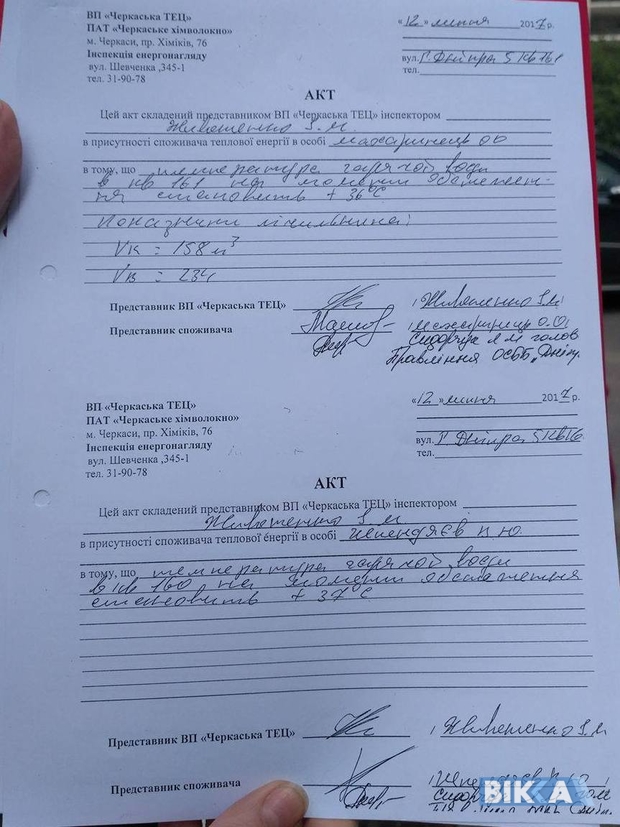 ВП «Черкаська ТЕЦ»
ПАТ «Черкаське хімволокно»
м. Черкаси, пр. Хіміків, 76
Інспекція енергонагляду
вул. Шевченка ,345-1
тел. 31-90-78
«12» липня 2017 р.
вул. Г. Дніпра 5 кв 161
тел.
АКТ
Цей акт складений представником ВП «Черкаська ТЕЦ» інспектором
в присутності споживача теплової енергії в особі
в тому, що температура гарячої води
в кв 161 на момент обстежен-
ня становить + 36°С
Показники лічильника:
Vк = 158 м³
Vв = 234
Представник ВП «Черкаська ТЕЦ»
Представник споживача
голов
Правління ОСББ „Дніпр
ВП «Черкаська ТЕЦ»
ПАТ «Черкаське хімволокно»
м. Черкаси, пр. Хіміків, 76
Інспекція енергонагляду
вул. Шевченка ,345-1
тел. 31-90-78
«12» липня 2017 р.
вул. Г. Дніпра 5 кв
тел.
АКТ
Цей акт складений представником ВП «Черкаська ТЕЦ» інспектором
в присутності споживача теплової енергії в особі
в тому, що температура гарячої води
в кв 160 на момент обстеження
становить + 37°С
Представник ВП «Черкаська ТЕЦ»
Представник споживача
ВІККА